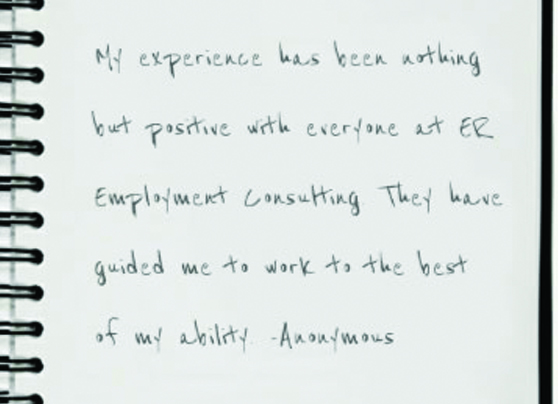 My experience has been nothing
but positive with everyone at ER
Employment Consulting. They have
guided me to work to the best
of my ability. -Anonymous